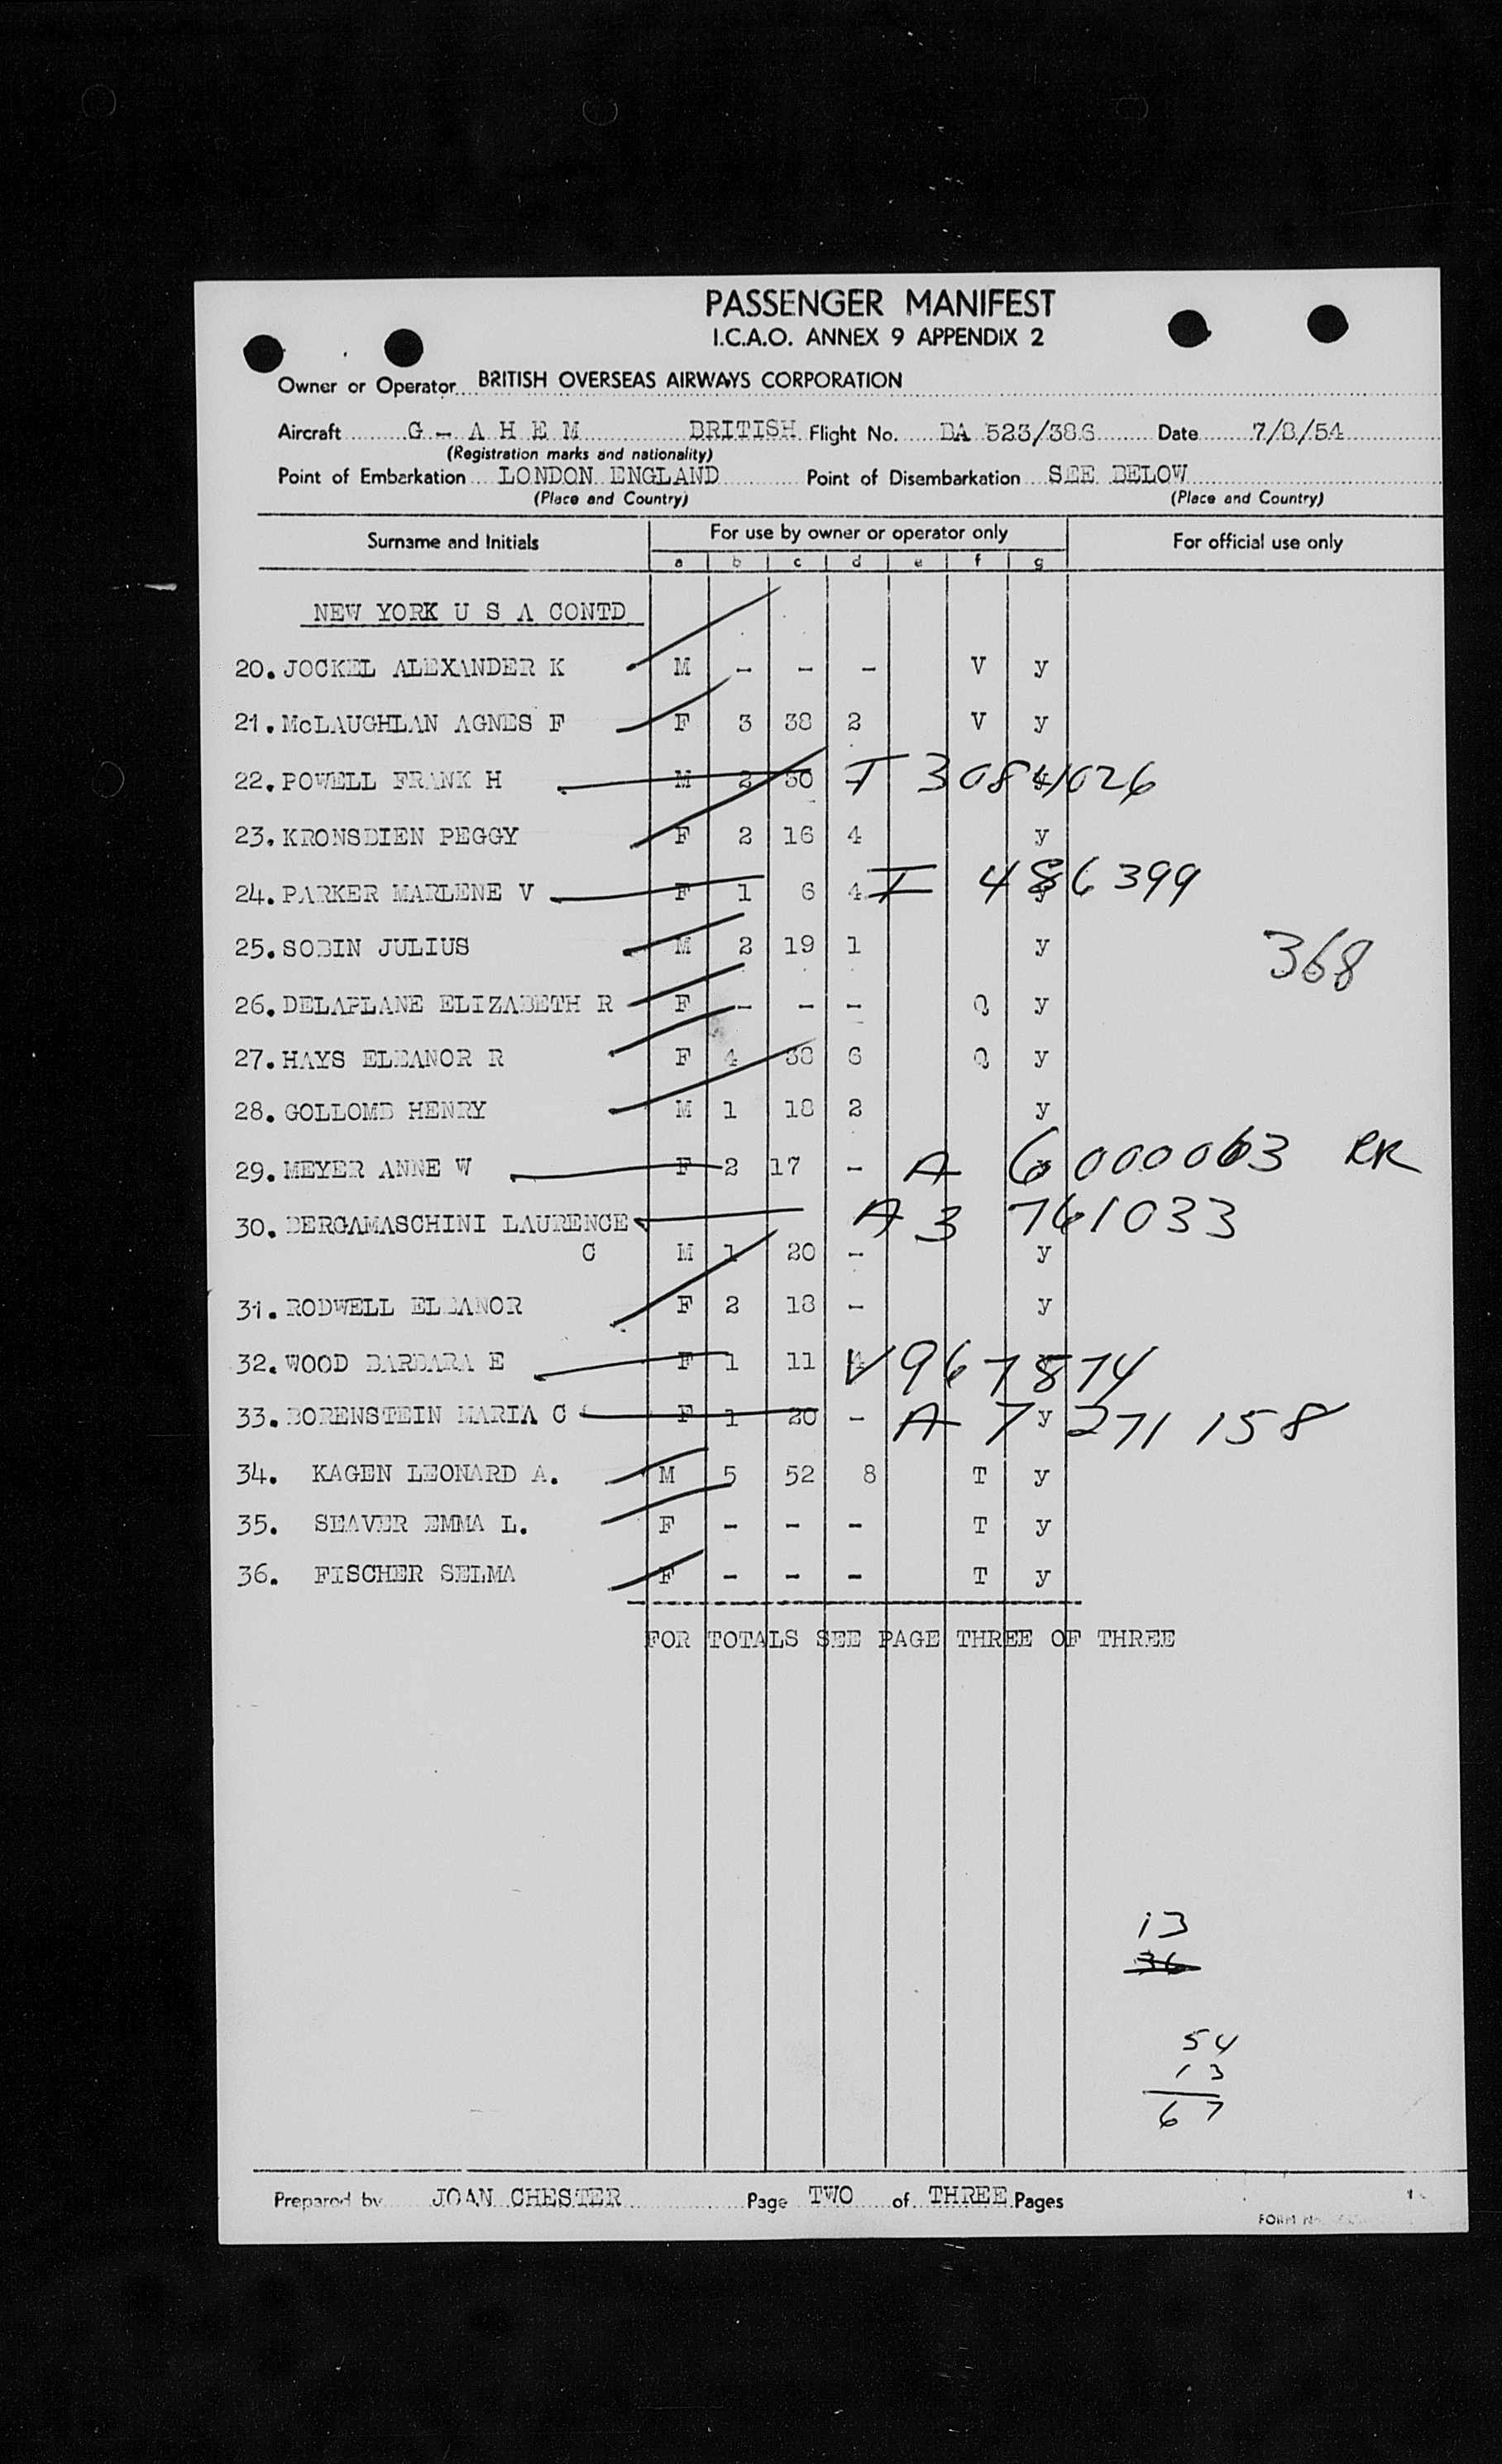 PASSENGER MANIFEST
I.C.A.O. ANNEX 9 APPENDIX 2
Owner or Operator BRITISH OVERSEAS AIRWAYS CORPORATION
Aircraft G - A H E M BRITISH Flight No. BA 523/386 Date 7/8/54
(Registration marks and nationality)
Point of Embarkation LONDON ENGLAND Point of Disembarkation SEE BELOW
(Place and Country) (Place and Country)
Surname and Initials For use by owner or operator only For official use only
a b c d e f g
NEW YORK U S A CONTD
20. JOCKEL ALEXANDER K M - - - V y
21. McLAUGHLAN AGNES F F 3 38 2 V y
22. POWELL FRANK H M 2 30 T 3084026
23. KRONSDIEN PEGGY F 2 16 4 y
24. PARKER MARLENE V F 1 6 4 I 486399
25. SOBIN JULIUS M 2 19 1 y
368
26. DELAPLANE ELIZABETH R F - - - Q y
27. HAYS ELEANOR R F 4 38 6 Q y
28. GOLLOMB HENRY M 1 18 2 y
29. MEYER ANNE W F 2 17 - A 6000063 RR
30. BERGAMASCHINI LAURENCE A3 761033
C M 1 20 - y
31. RODWELL ELEANOR F 2 18 - y
32. WOOD BARBARA E F 1 11 4 V967874
33. BORENSTEIN MARIA C F 1 20 - A 7 y 271 158
34. KAGEN LEONARD A. M 5 52 8 T y
35. SEAVER EMMA L. F - - - T y
36. FISCHER SELMA F - - - T y
FOR TOTALS SEE PAGE THREE OF THREE
13
36
54
13
67
Prepared by JOAN CHESTER Page TWO of THREE Pages
FORM No.